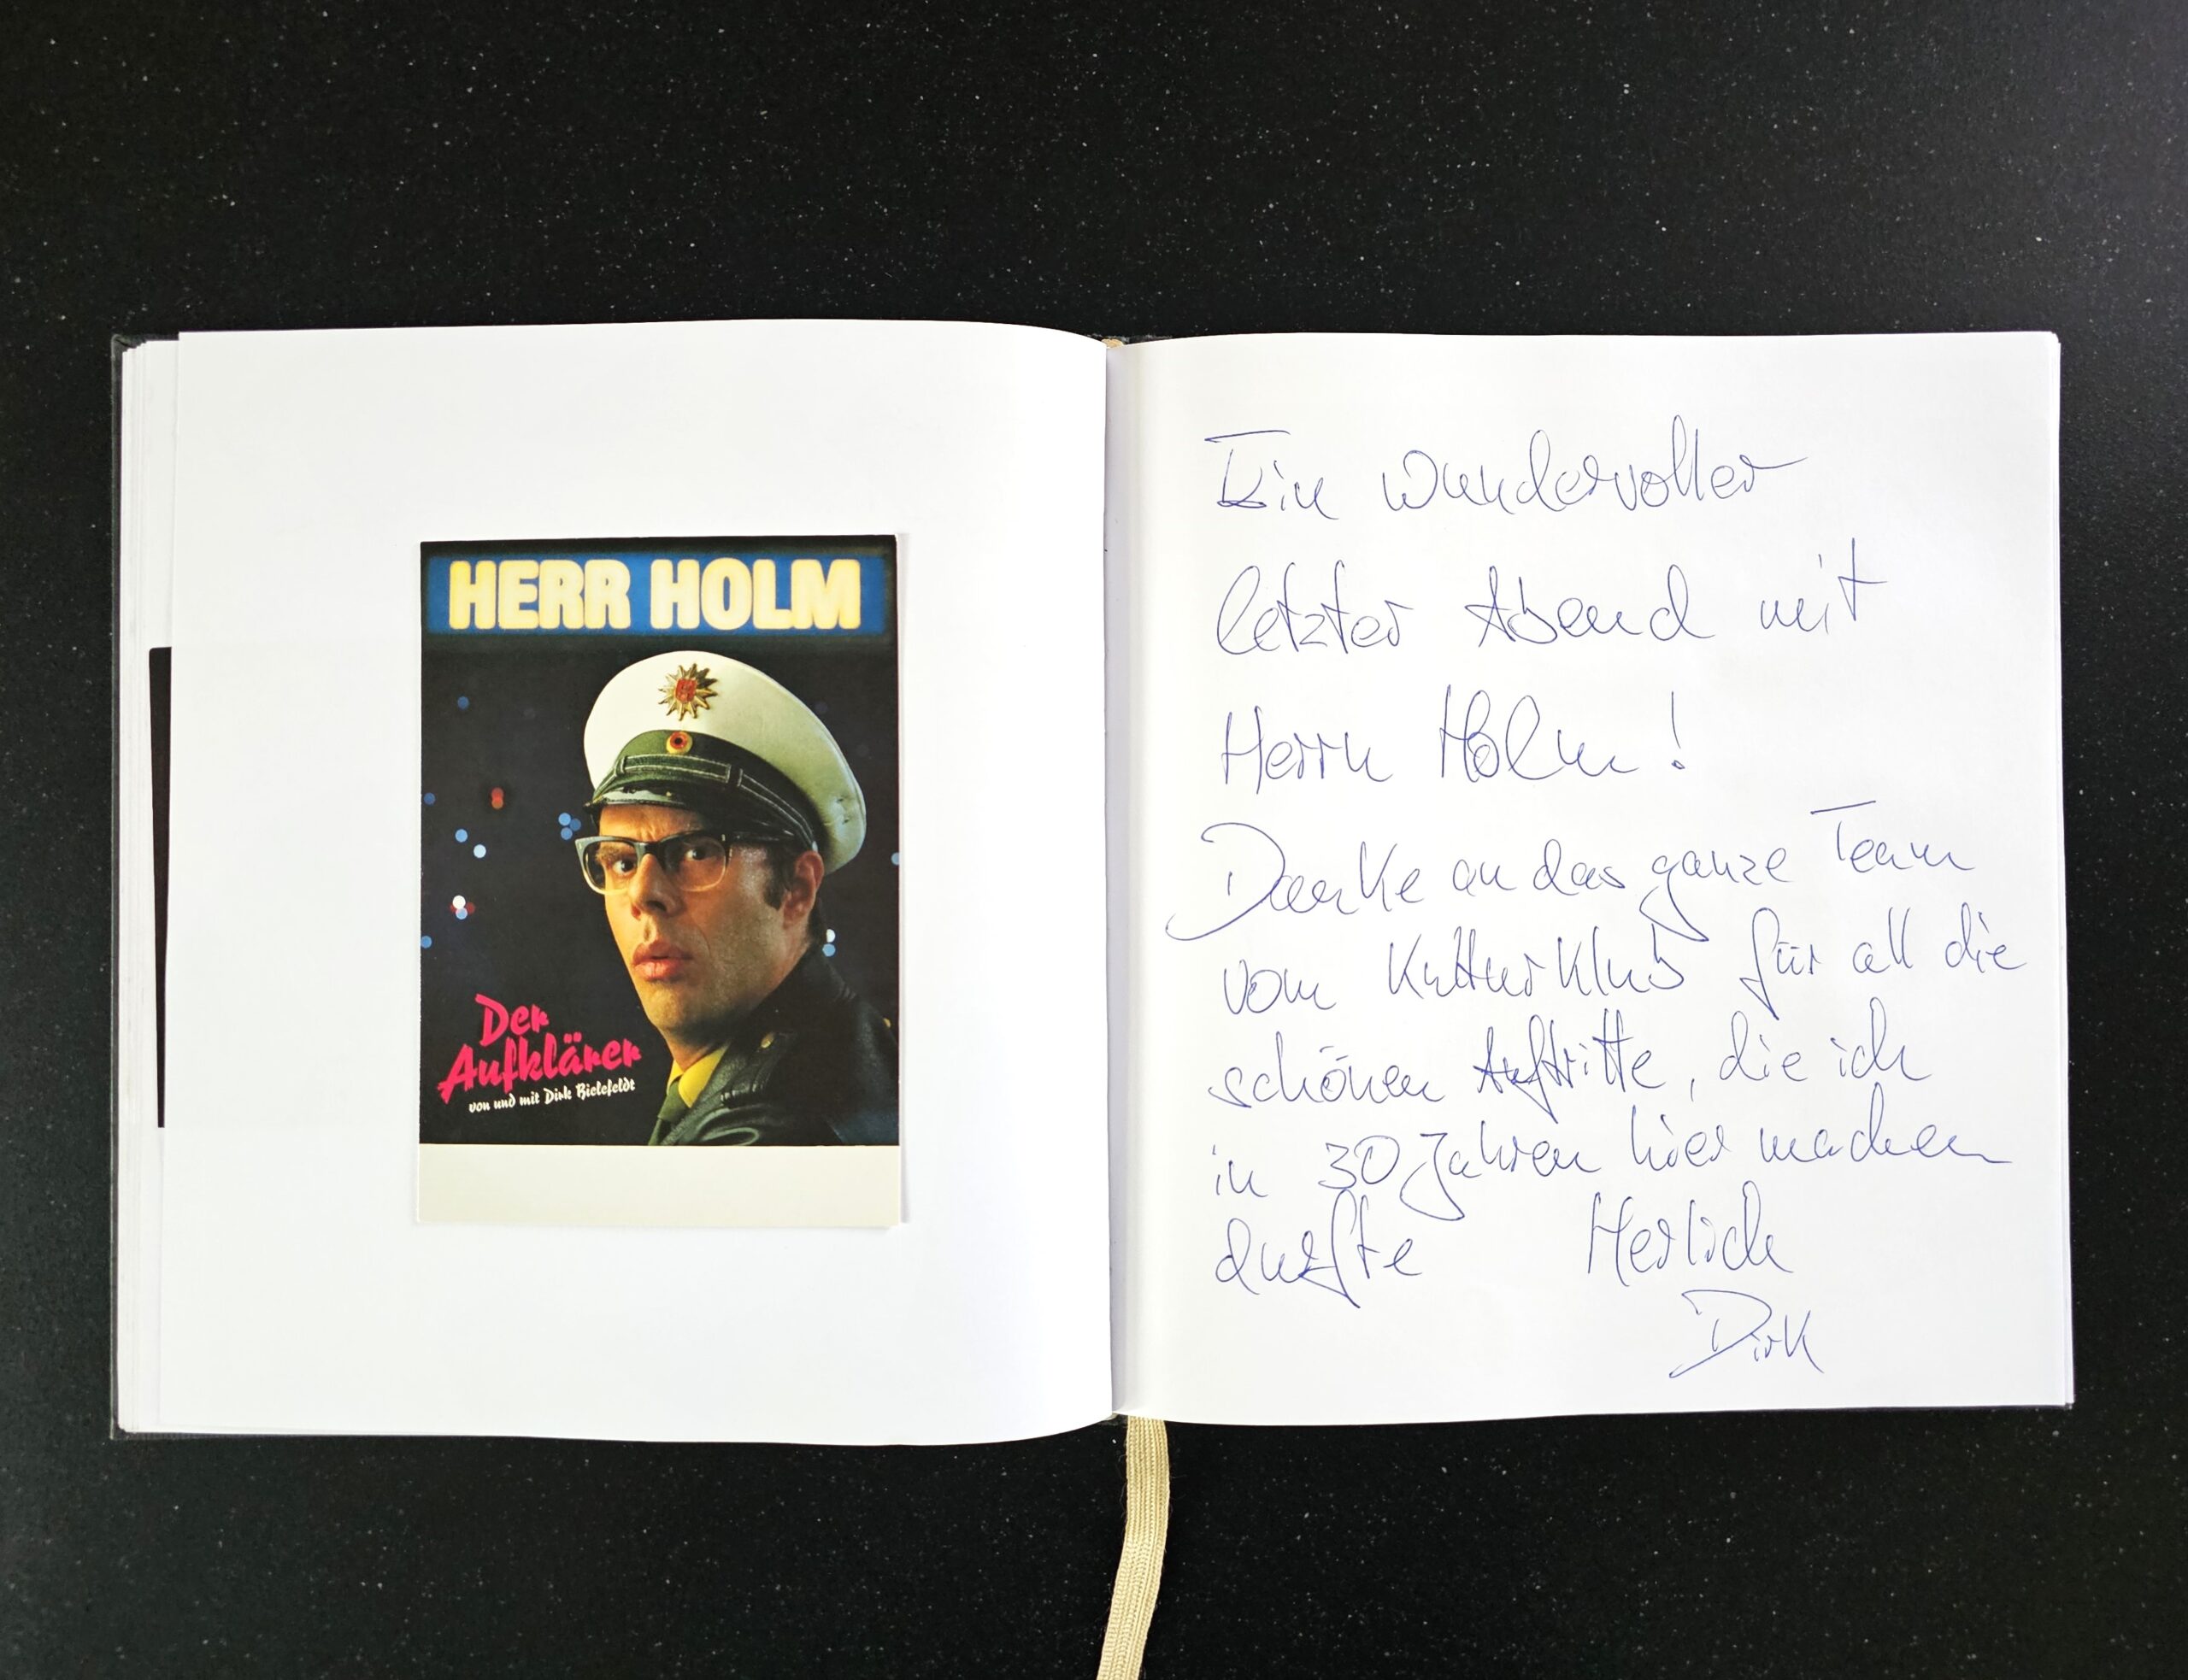 HERR HOLM
Der
Aufklärer
von und mit Dirk Bielefeldt
Ein wundervoller
letzter Abend mit
Herrn Holm!
Danke an das ganze Team
vom KulturKlub für all die
schönen Auftritte, die ich
in 30 Jahren hier machen
durfte Herlich
Dirk